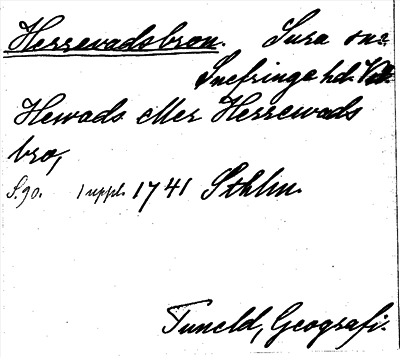 Herrevadsbron. Sura sn:
Snefringe hd. Vstl.
Hewads eller Herrewads
bro,
S. 90. 1 uppl. 1741 Sthlm.
Tuneld, Geografi.